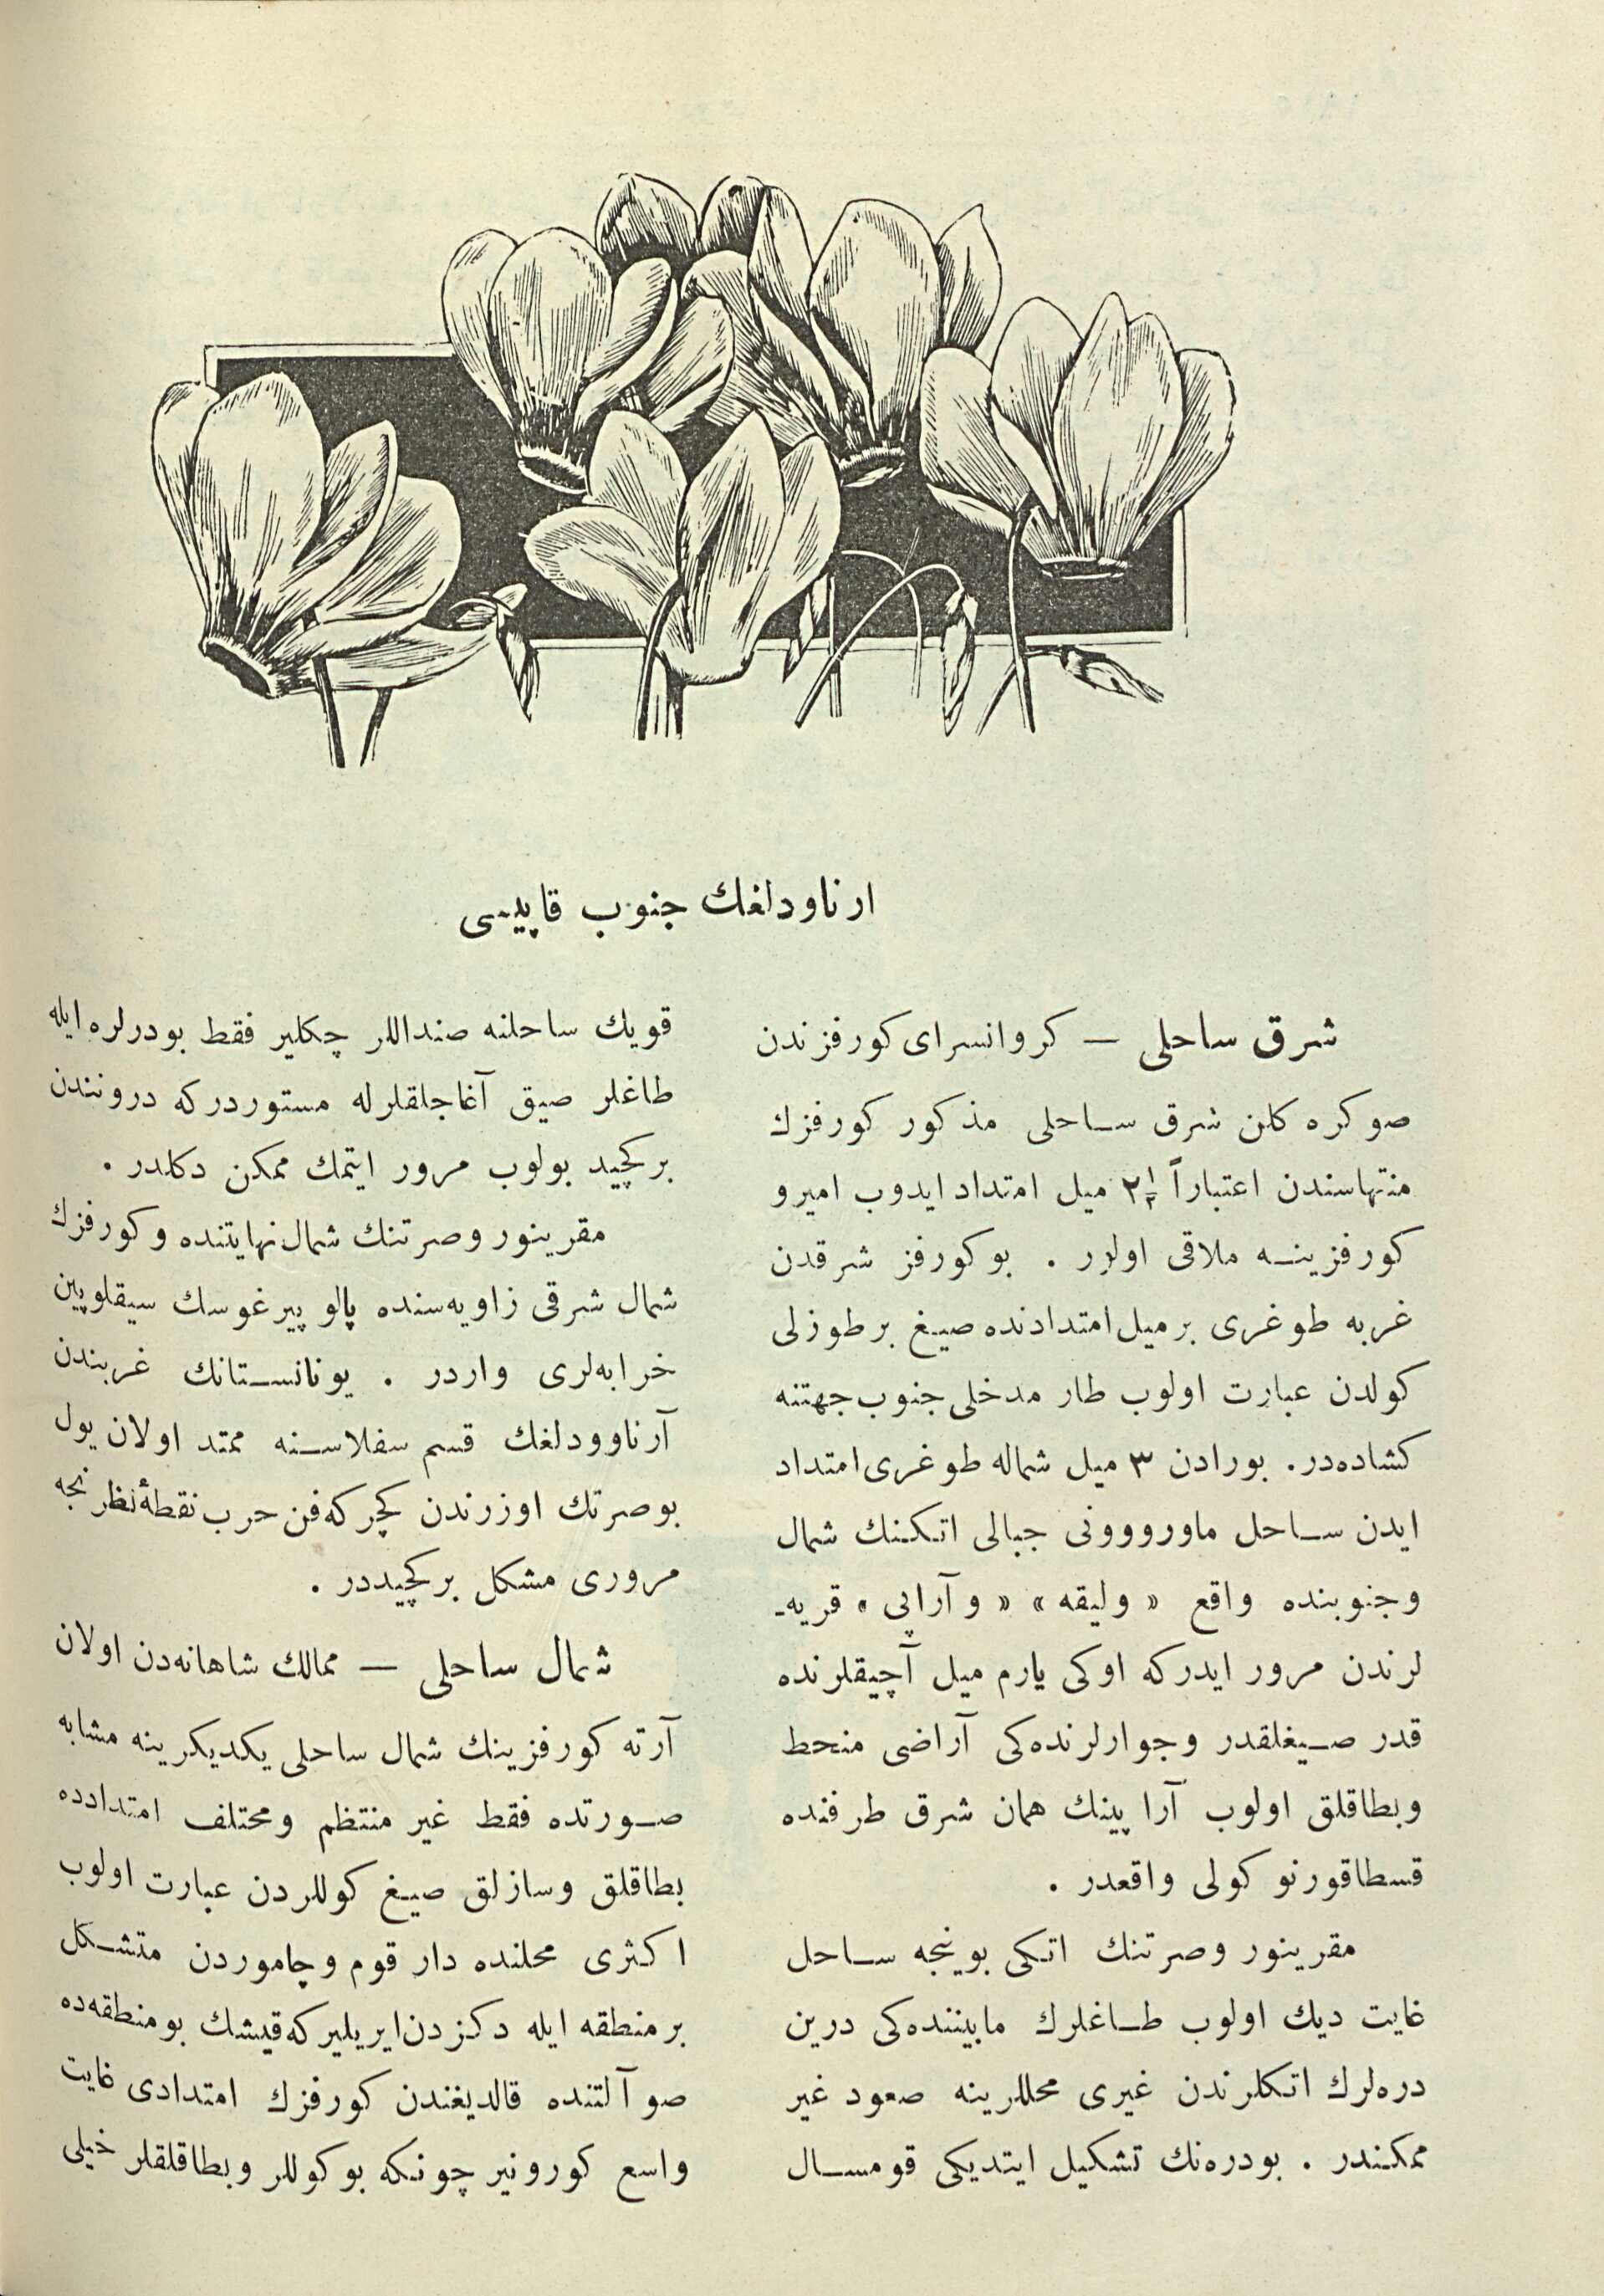 ارناودلغك جنوب قاپيسی
شرق ساحلی — كروانسرای كورفزندن
صوكره كلن شرق ساحلی مذكور كورفزك
منتهاسندن اعتباراً ٢١/٢ ميل امتداد ايدوب اميرو
كورفزينه ملاقی اولور . بو كورفز شرقدن
غربه طوغری برميل امتدادنده صيغ بر طوزلی
كولدن عبارت اولوب طار مدخلی جنوب جهتنه
كشاده‌در. بورادن ٣ ميل شماله طوغری امتداد
ايدن ساحل ماورووونی جبالی اتكنك شمال
وجنوبنده واقع « وليقه » « و آراپی » قريه‌ـ
لرندن مرور ايدركه اوكی يارم ميل آچيقلرنده
قدر صيغلقدر وجوارلرنده‌كی آراضی منحط
وبطاقلق اولوب آراپينك همان شرق طرفنده
قسطاقورنو كولی واقعدر .
مقرينور وصرتنك اتكی بوينجه ساحل
غايت ديك اولوب طاغلرك مابيننده‌كی درين
دره‌لرك اتكلرندن غيری محللرينه صعود غير
ممكندر . بودره‌نك تشكيل ايتديكی قومسال
قويك ساحلنه صنداللر چكلير فقط بودرلره ايله
طاغلر صيق آغاجلقلرله مستوردركه دروننندن
بركچيد بولوب مرور ايتمك ممكن دكلدر .
مقرينور وصرتنك شمال نهايتنده وكورفزك
شمال شرقی زاويه‌سنده پالو پيرغوسك سيقلوپين
خرابه‌لری واردر . يونانستانك غربندن
آرناوودلغك قسم سفلاسنه ممتد اولان يول
بوصرتك اوزرندن كچركه فن حرب نقطهٔ نظرنجه
مروری مشكل بركچيددر .
شمال ساحلی — ممالك شاهانه‌دن اولان
آرته كورفزينك شمال ساحلی يكديكرينه مشابه
صورتده فقط غير منتظم ومختلف امتدادده
بطاقلق وسازلق صيغ كوللردن عبارت اولوب
اكثری محلنده دار قوم وچاموردن متشكل
برمنطقه ايله دكزدن ايريليركه قيشك بومنطقه‌ده
صو آلتنده قالديغندن كورفزك امتدادی غايت
واسع كورونير چونكه بوكوللر وبطاقلقلر خيلی